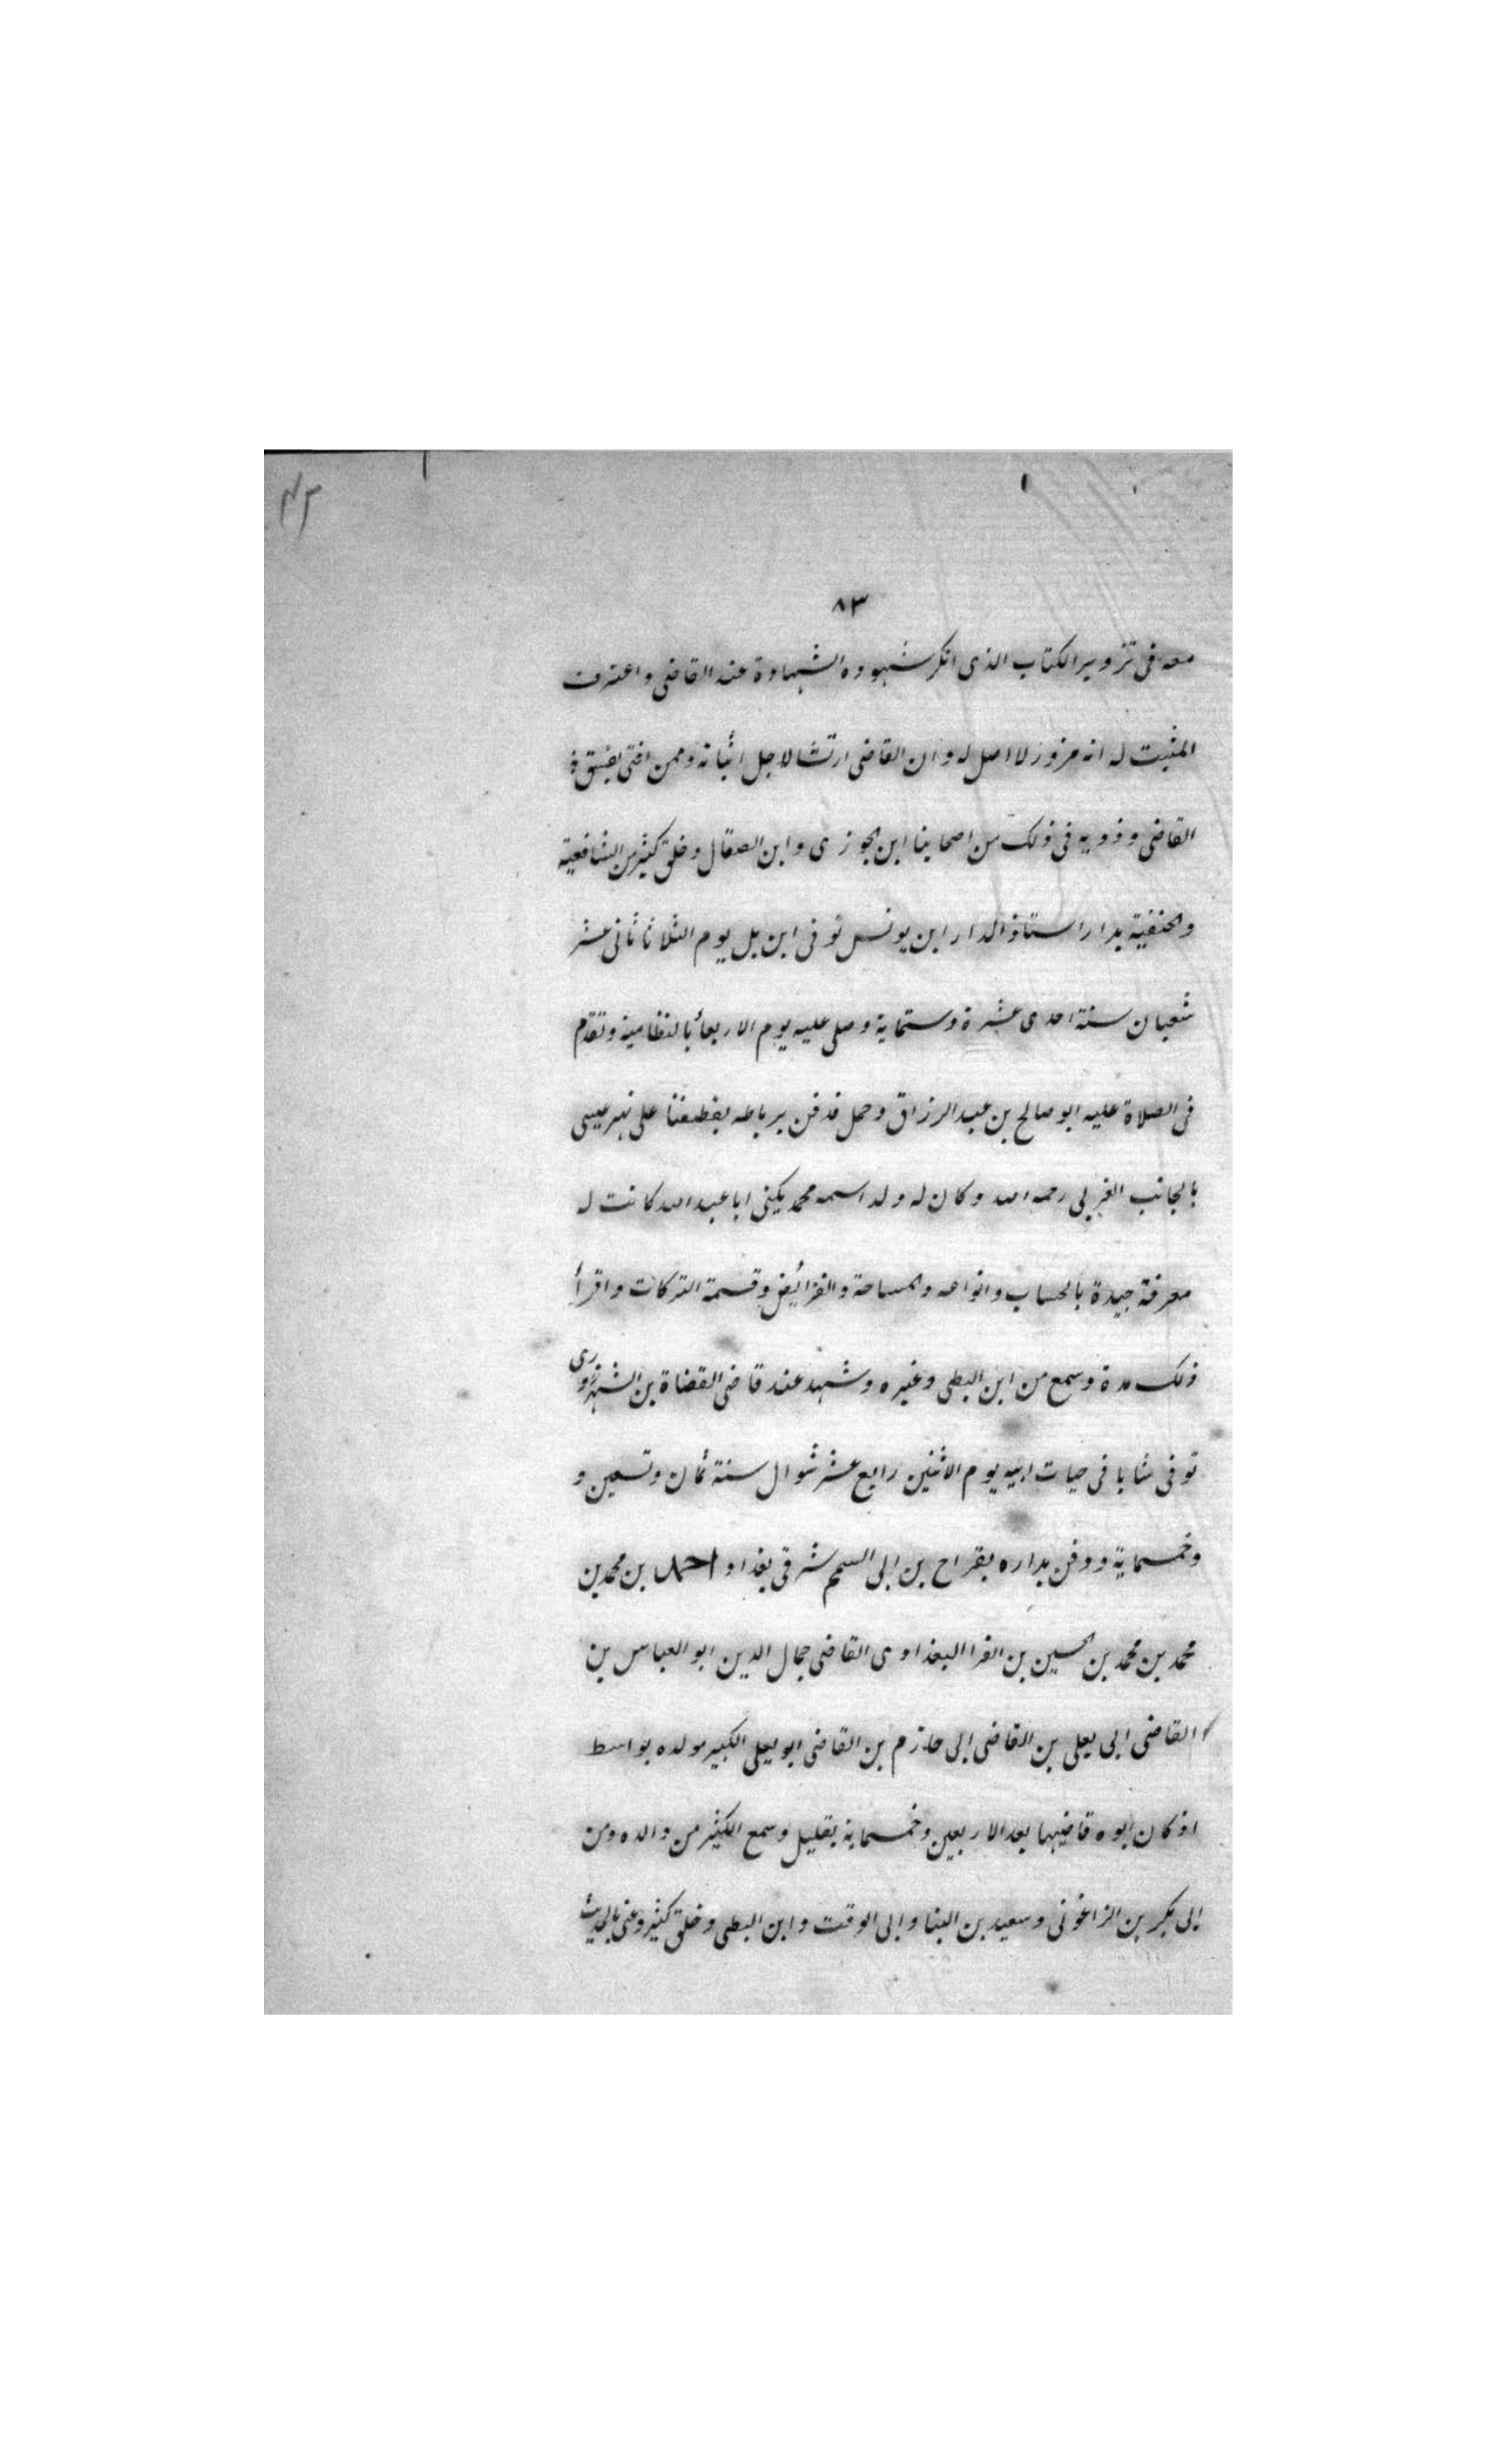 ٨٣
معه فى تزوير الكتاب الذى انكر شهوده الشهادة عند القاضى واعترف
المثبت له انه مزور لا اصل له وان القاضى ارتشا لاجل اثباته وممن افتى بفسق
القاضى وذويه فى ذلك من اصحابنا ابن الجوزى وابن الصقال وخلق كثير من الشافعية
والحنفية بدار استاذ الدار ابن يونس توفى ابن بل يوم الثلاثا ثانى عشر
شعبان سنة احدى عشرة وستماية وصلى عليه يوم الاربعأ بالنظامية وتقدم
فى الصلاة عليه ابو صالح بن عبد الرزاق وحمل فدفن برباطه بقطفتا على نهر عيسى
بالجانب الغربى رحمه الله وكان له ولد اسمه محمد يكنى ابا عبد الله كانت له
معرفة جيدة بالحساب وانواعه والمساحة والفرائض وقسمة التركات واقرأ
ذلك مدة وسمع من ابن البطى وغيره وشهد عند قاضى القضاة بن الشهرزورى
توفى شابا فى حيات ابيه يوم الاثنين رابع عشر شوال سنة ثمان وتسعين و
وخمسماية ودفن بداره بقراح بن ابى السمم شرقى بغداد احمد بن محمد بن
محمد بن محمد بن الحسين بن الفرا البغدادى القاضى جمال الدين ابو العباس بن
القاضى ابى يعلى بن القاضى ابى حازم بن القاضى ابو يعلى الكبير مولده بواسط
اذ كان ابوه قاضيها بعد الاربعين وخمسماية بقليل وسمع الكثير من والده ومن
ابى بكر بن الزاغونى وسعيد بن البنا وابى الوقت وابن البطى وخلق كثير وعنى بالحديث